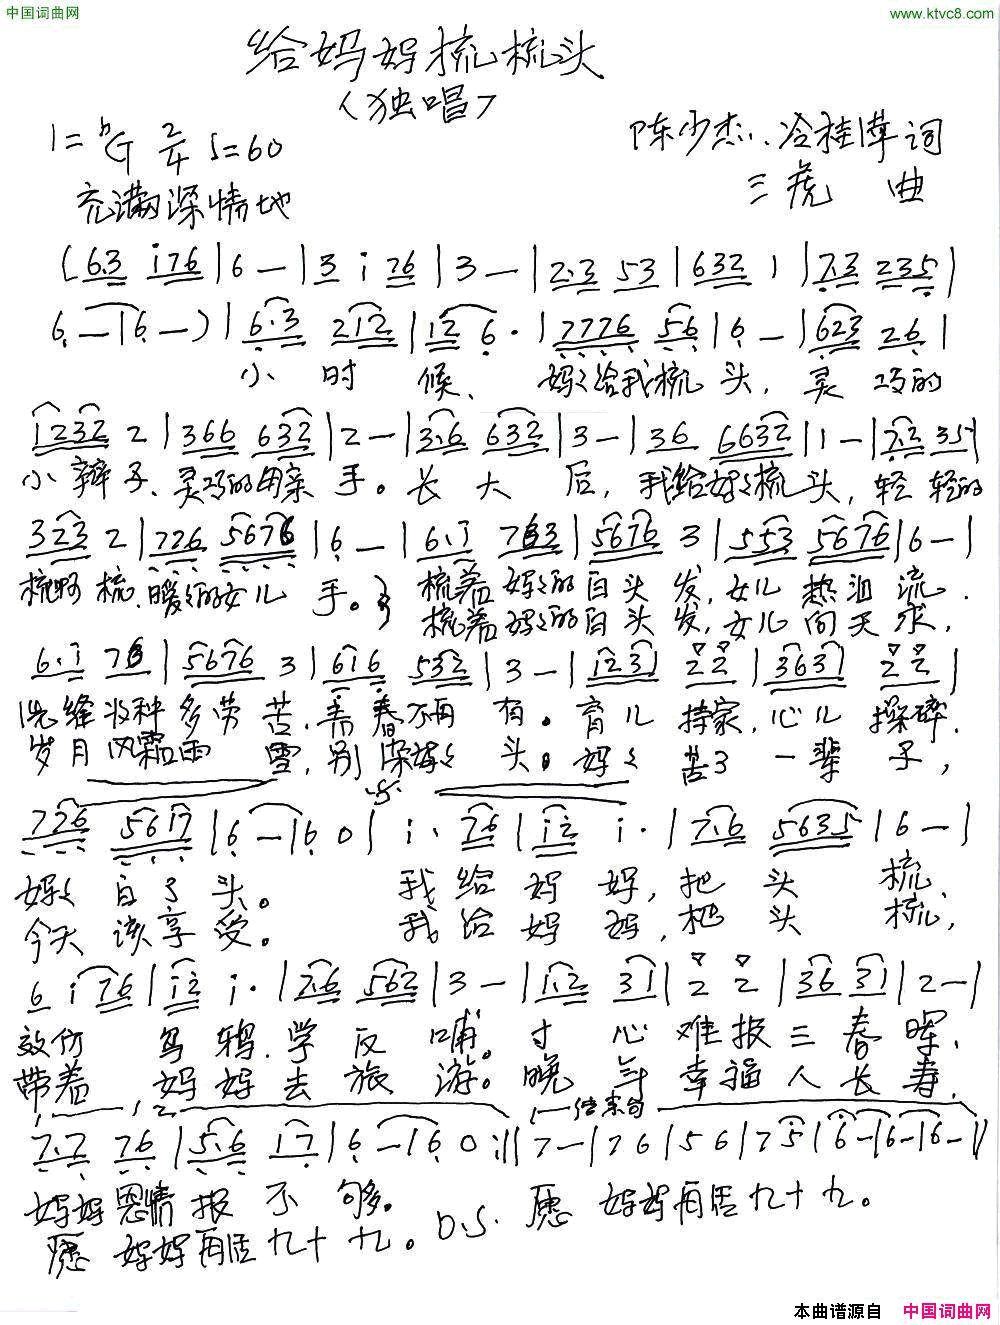 中国词曲网
www.ktvc8.com
给妈妈梳梳头
(独唱)
1=ᵇG 2/4 ♩=60
陈少杰、冷桂萍 词
充满深情地
三虎 曲
(6.3 i76|6 —|3 i 76|3 —|2.3 53|632 1|7.3 235|
6 —|6 —)|6.3 212|12 6·|7776 56|6 —|623 26|
小 时 候、 妈妈给我梳 头, 灵 巧的
1232 2|366 632|2 —|3.6 632|3 —|36 6632|1 —|7.2 35|
小 辫 子、灵巧的母亲 手。长 大 后, 我给妈妈梳 头, 轻 轻的
323 2|726 5676|6 —|6.i 763|5676 3|553 5676|6 —|
梳啊 梳、暖暖的女儿 手。梳着 妈妈的白头 发, 女儿 热泪 流.
梳着 妈妈的白头 发, 女儿 向天 求,
6.i 763|5676 3|616 532|3 —|1231 2 2|3631 2 2|
多劳 苦, 青春不再 有。育儿 持家, 心儿 操碎.
岁月风霜雨 雪, 别染妈妈 头。妈妈 苦了 一辈 子,
726 5617|6 —|6 0|i· 76|i2 i·|7.6 5635|6 —|
妈妈 白了头。 我给 妈 妈, 把 头 梳、
今天 该享 受。 我给 妈 妈, 把 头 梳,
6 i 76|i2 i·|7.6 562|3 —|1.2 31|2 2|36 31|2 —|
效仿 乌 鸦. 学 反 哺。寸 心 难报 三 春 晖、
带着 妈 妈 去 旅 游。晚 年 幸福 人 长 寿,
1. 2. 结束句
7.7 76|5.6 17|6 —|6 0:||7 —|7 6|5 6|7 5|6 —|6 —|6 —||
妈妈恩情 报 不 够。
D.S. 愿 妈妈再活九十九。
愿 妈妈再活九十 九。
本曲谱源自 中国词曲网